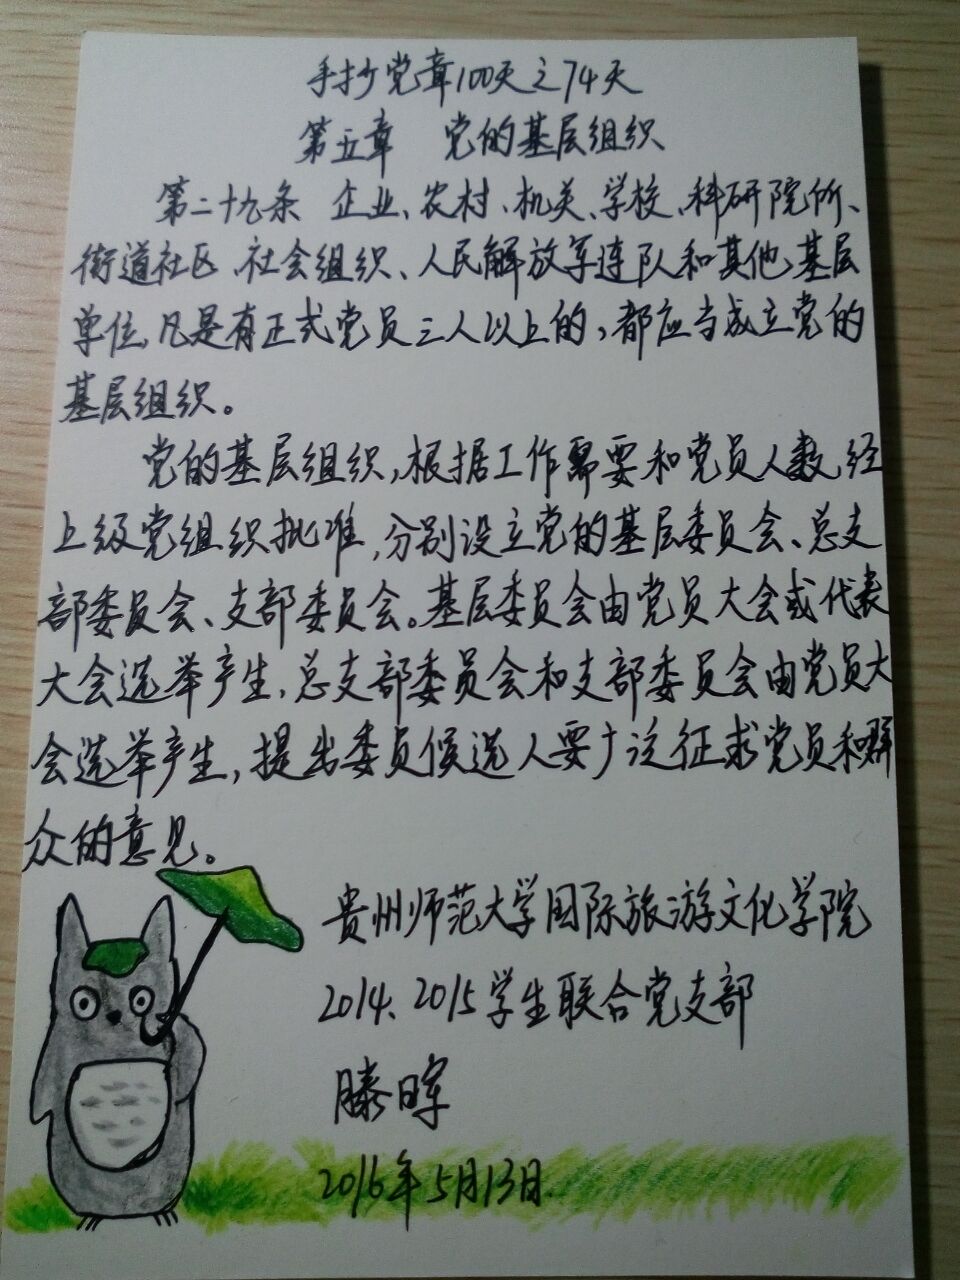 手抄党章100天之74天
第五章 党的基层组织
第二十九条 企业、农村、机关、学校、科研院所、
街道社区、社会组织、人民解放军连队和其他基层
单位,凡是有正式党员三人以上的,都应当成立党的
基层组织。
党的基层组织,根据工作需要和党员人数,经
上级党组织批准,分别设立党的基层委员会、总支
部委员会、支部委员会。基层委员会由党员大会或代表
大会选举产生,总支部委员会和支部委员会由党员大
会选举产生,提出委员候选人要广泛征求党员和群
众的意见。
贵州师范大学国际旅游文化学院
2014、2015学生联合党支部
滕晖
2016年5月13日.